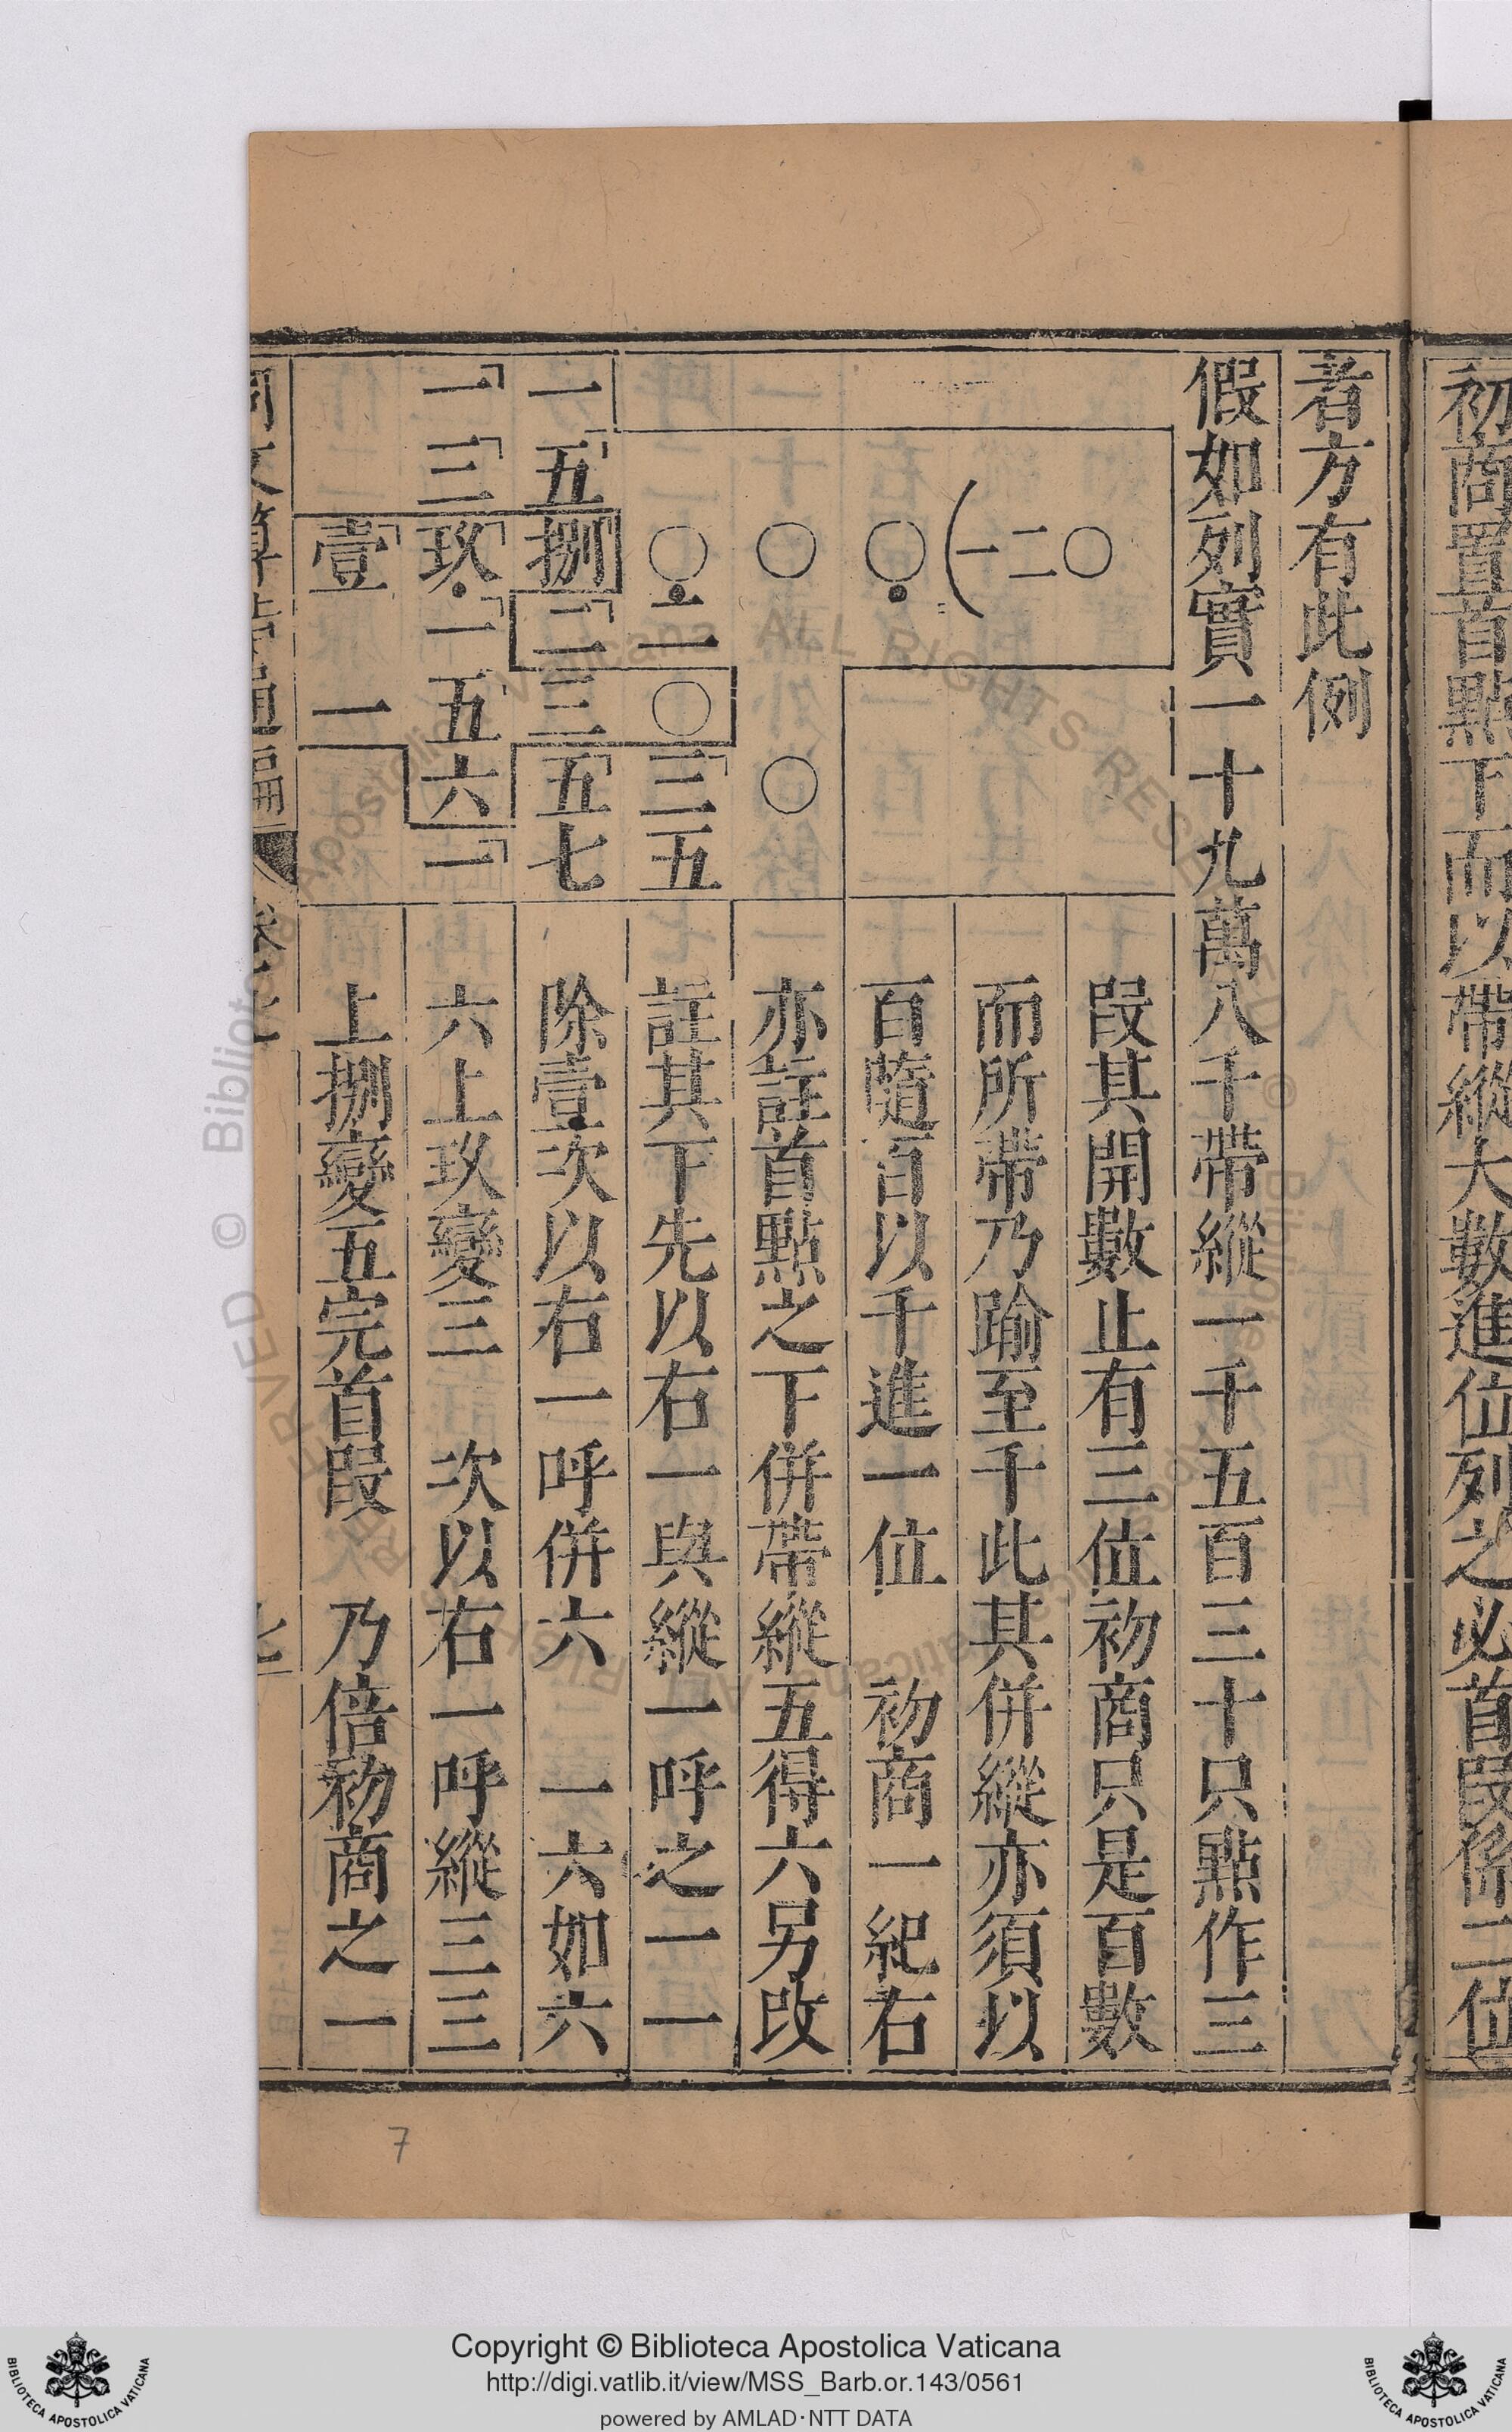 初商置首點下而以帶縱大數進位列之必首段係二位
者方有此例
假如列實一十九萬八千帶縱一千五百三十只點作三
段其開數止有三位初商只是百數
而所帶乃踰至千此其併縱亦須以
百隨百以千進一位 初商一紀右
亦註首點之下併帶縱五得六另改
註其下先以右一與縱一呼之一一
除壹次以右一呼併六 一六如六
六上玖變三 次以右一呼縱三三
上捌變五完首段 乃倍初商之一
(一二〇
〇
〇 〇
〇 一 〇 三五
一五捌 二三五七
一三玖 一五六一
壹 一
同文算指通編
7
Copyright © Biblioteca Apostolica Vaticana
http://digi.vatlib.it/view/MSS_Barb.or.143/0561
powered by AMLAD·NTT DATA
BIBLIOTECA APOSTOLICA VATICANA
BIBLIOTECA APOSTOLICA VATICANA